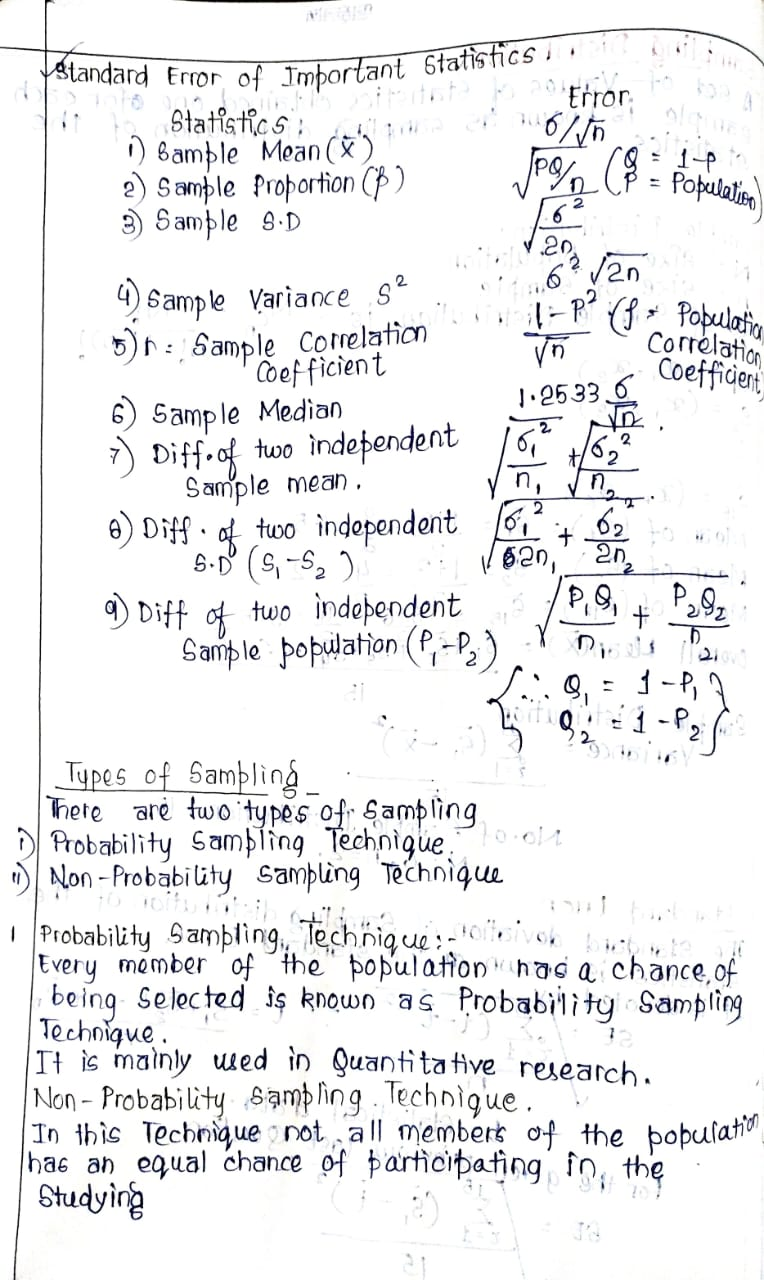 Standard Error of Important Statistics.
Statistics: Error
1) Sample Mean (x̄) σ/√n
2) Sample Proportion (p) √PQ/n (Q = 1-P
P = Population)
3) Sample S.D √σ²/2n
4) Sample Variance S² σ² √2/n
5) r = Sample Correlation 1-P²/√n (ρ = Population
Coefficient Correlation
Coefficient)
6) Sample Median 1.2533 σ/√n
7) Diff. of two independent √σ₁²/n₁ + √σ₂²/n₂
Sample mean.
8) Diff. of two independent √σ₁²/2n₁ + σ₂²/2n₂
S.D (S₁-S₂)
9) Diff of two independent √P₁Q₁/n₁ + P₂Q₂/n₂
Sample population (P₁-P₂)
{∴ Q₁ = 1-P₁
Q₂ = 1-P₂}
Types of Sampling
There are two types of Sampling
i) Probability Sampling Technique.
ii) Non-Probability Sampling Technique
1 Probability Sampling Technique:-
Every member of the population has a chance of
being Selected is known as Probability Sampling
Technique.
It is mainly used in Quantitative research.
Non-Probability Sampling Technique.
In this Technique not all members of the population
has an equal chance of participating in the
Studying